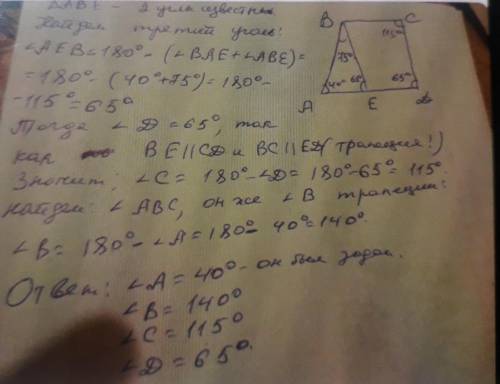 ΔABE - 2 угла известны.
Найдём третий угол:
∠AEB=180°-(∠BAE+∠ABE)=
=180°-(40°+75°)=180°-
-115°=65°
Тогда ∠D=65°, так
как BE||CD и BC||ED (трапеция!)
Значит, ∠C=180°-∠D=180°-65°=115°.
Найдём: ∠ABC, он же ∠B трапеции:
∠B=180°-∠A=180°-40°=140°.
Ответ: ∠A=40°- он был задан.
∠B=140°
∠C=115°
∠D=65°.
B C
115°
75°
40° 65 65°
A E D